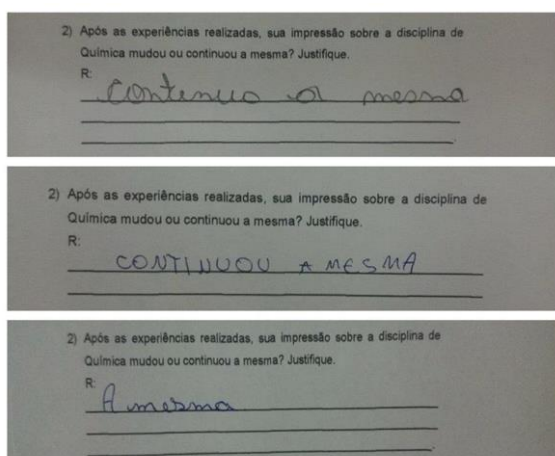 2) Após as experiências realizadas, sua impressão sobre a disciplina de
Química mudou ou continuou a mesma? Justifique.
R:
Contenuo a mesma
2) Após as experiências realizadas, sua impressão sobre a disciplina de
Química mudou ou continuou a mesma? Justifique.
R:
CONTINUOU A MESMA
2) Após as experiências realizadas, sua impressão sobre a disciplina de
Química mudou ou continuou a mesma? Justifique.
R:
A mesma